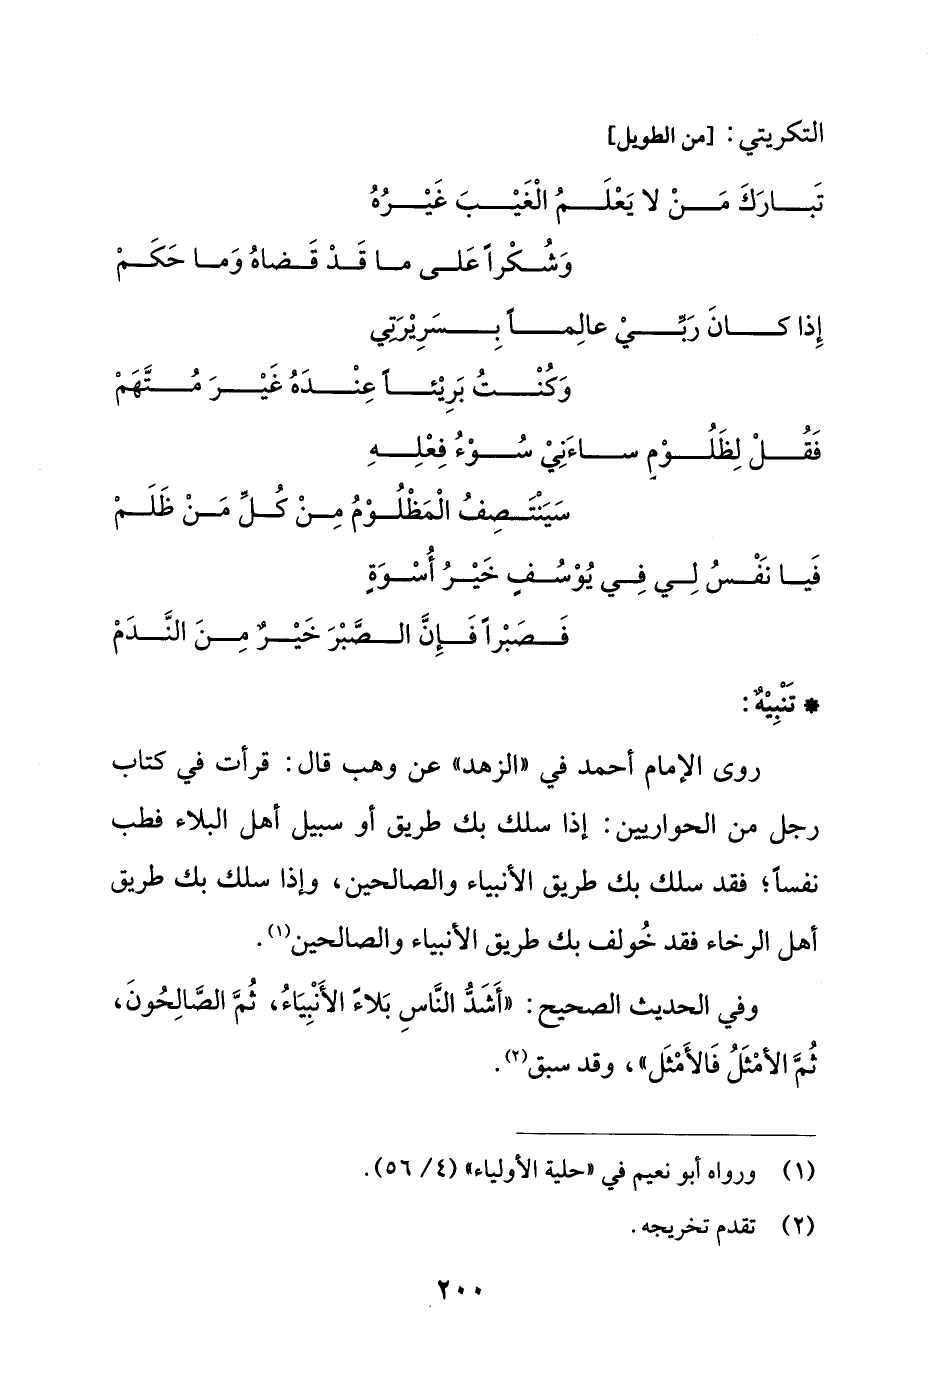 التكريتي: [من الطويل]
تَبارَكَ مَنْ لا يَعْلَمُ الْغَيْبَ غَيْرُهُ
وَشُكْراً عَلى ما قَدْ قَضاهُ وَما حَكَمْ
إِذا كانَ رَبِّيْ عالِماً بِسَرِيْرَتِي
وَكُنْتُ بَرِيْئاً عِنْدَهُ غَيْرَ مُتَّهَمْ
فَقُلْ لِظَلُوْمٍ ساءَنِيْ سُوْءُ فِعْلِهِ
سَيَنْتَصِفُ الْمَظْلُوْمُ مِنْ كُلِّ مَنْ ظَلَمْ
فَيا نَفْسُ لِي فِي يُوْسُفٍ خَيْرُ أُسْوَةٍ
فَصَبْراً فَإِنَّ الصَّبْرَ خَيْرٌ مِنَ النَّدَمْ
* تَنْبِيْهٌ:
روى الإمام أحمد في «الزهد» عن وهب قال: قرأت في كتاب
رجل من الحواريين: إذا سلك بك طريق أو سبيل أهل البلاء فطب
نفساً؛ فقد سلك بك طريق الأنبياء والصالحين، وإذا سلك بك طريق
أهل الرخاء فقد خُولف بك طريق الأنبياء والصالحين(١).
وفي الحديث الصحيح: «أَشَدُّ النَّاسِ بَلاءً الأَنْبِيَاءُ، ثُمَّ الصَّالِحُونَ،
ثُمَّ الأَمْثَلُ فَالأَمْثَل»، وقد سبق(٢).
(١) ورواه أبو نعيم في «حلية الأولياء» (٤/ ٥٦).
(٢) تقدم تخريجه.
٢٠٠